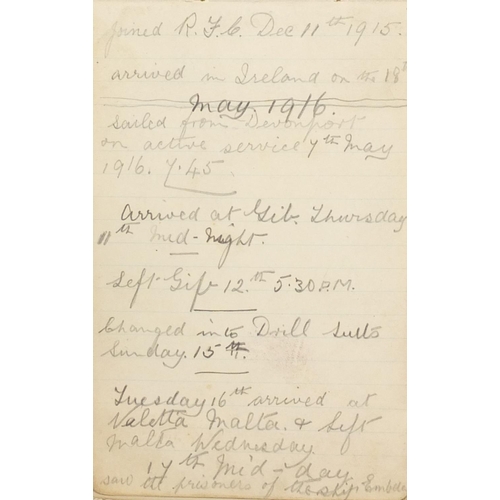 joined R.F.C. Dec 11th 1915.
arrived in Ireland on the 18th
May. 1916.
sailed from Devonport
on active service 7th May
1916. 7.45.
Arrived at Gib. Thursday
11th Mid-night.
Left Gib 12.th 5.30 P.M.
Changed into Drill suits
Sunday. 15th.
Tuesday 16th arrived at
Valetta Malta. & Left
Malta Wednesday.
17th Mid-day
saw the prisoners of the ship